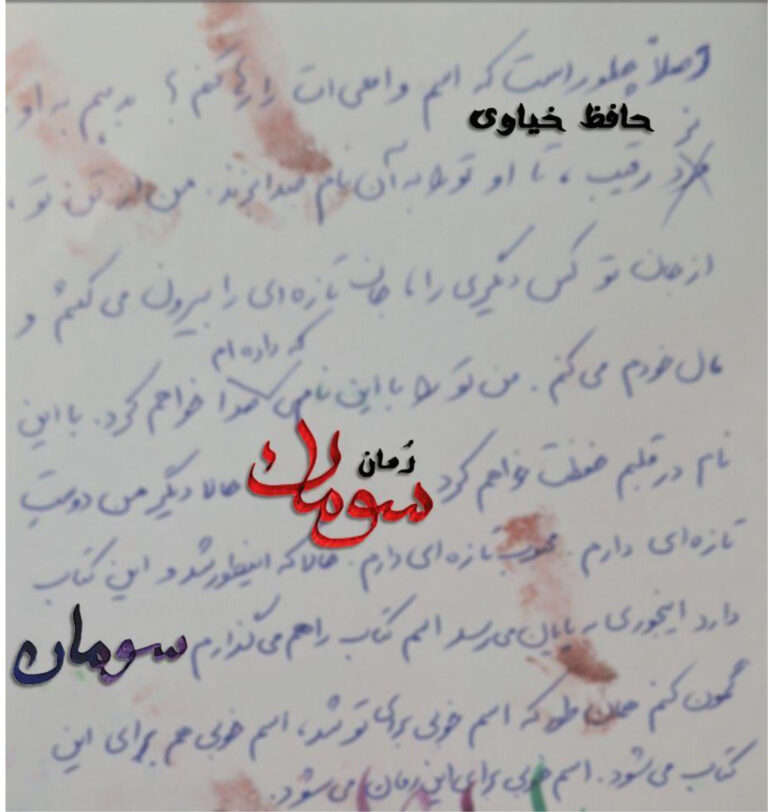 اصلاً چطور است که اسم واقعی‌ات را رها کنم؟ بدهیم به او
حافظ خیاوی
نر
مرد رقیب، تا او تو را به آن نام صدا بزند. من از تن تو،
از جان تو کس دیگری را با جان تازه‌ای را بیرون می‌کشم و
که داده‌ام
مال خودم می‌کنم. من تو را با این نامی صدا خواهم کرد. با این
رُمان
سومان
نام در قلبم حفظت خواهم کرد حالا دیگر من دوست
تازه‌ای دارم. محبوب تازه‌ای دارم. حالا که اینطور شد و این کتاب
دارد اینجوری به پایان می‌رسد اسم کتاب را هم می‌گذارم سومان
گمون کنم همان طور که اسم خوبی برای تو شد، اسم خوبی هم برای این
کتاب می‌شود. اسم خوبی برای این رمان می‌شود.